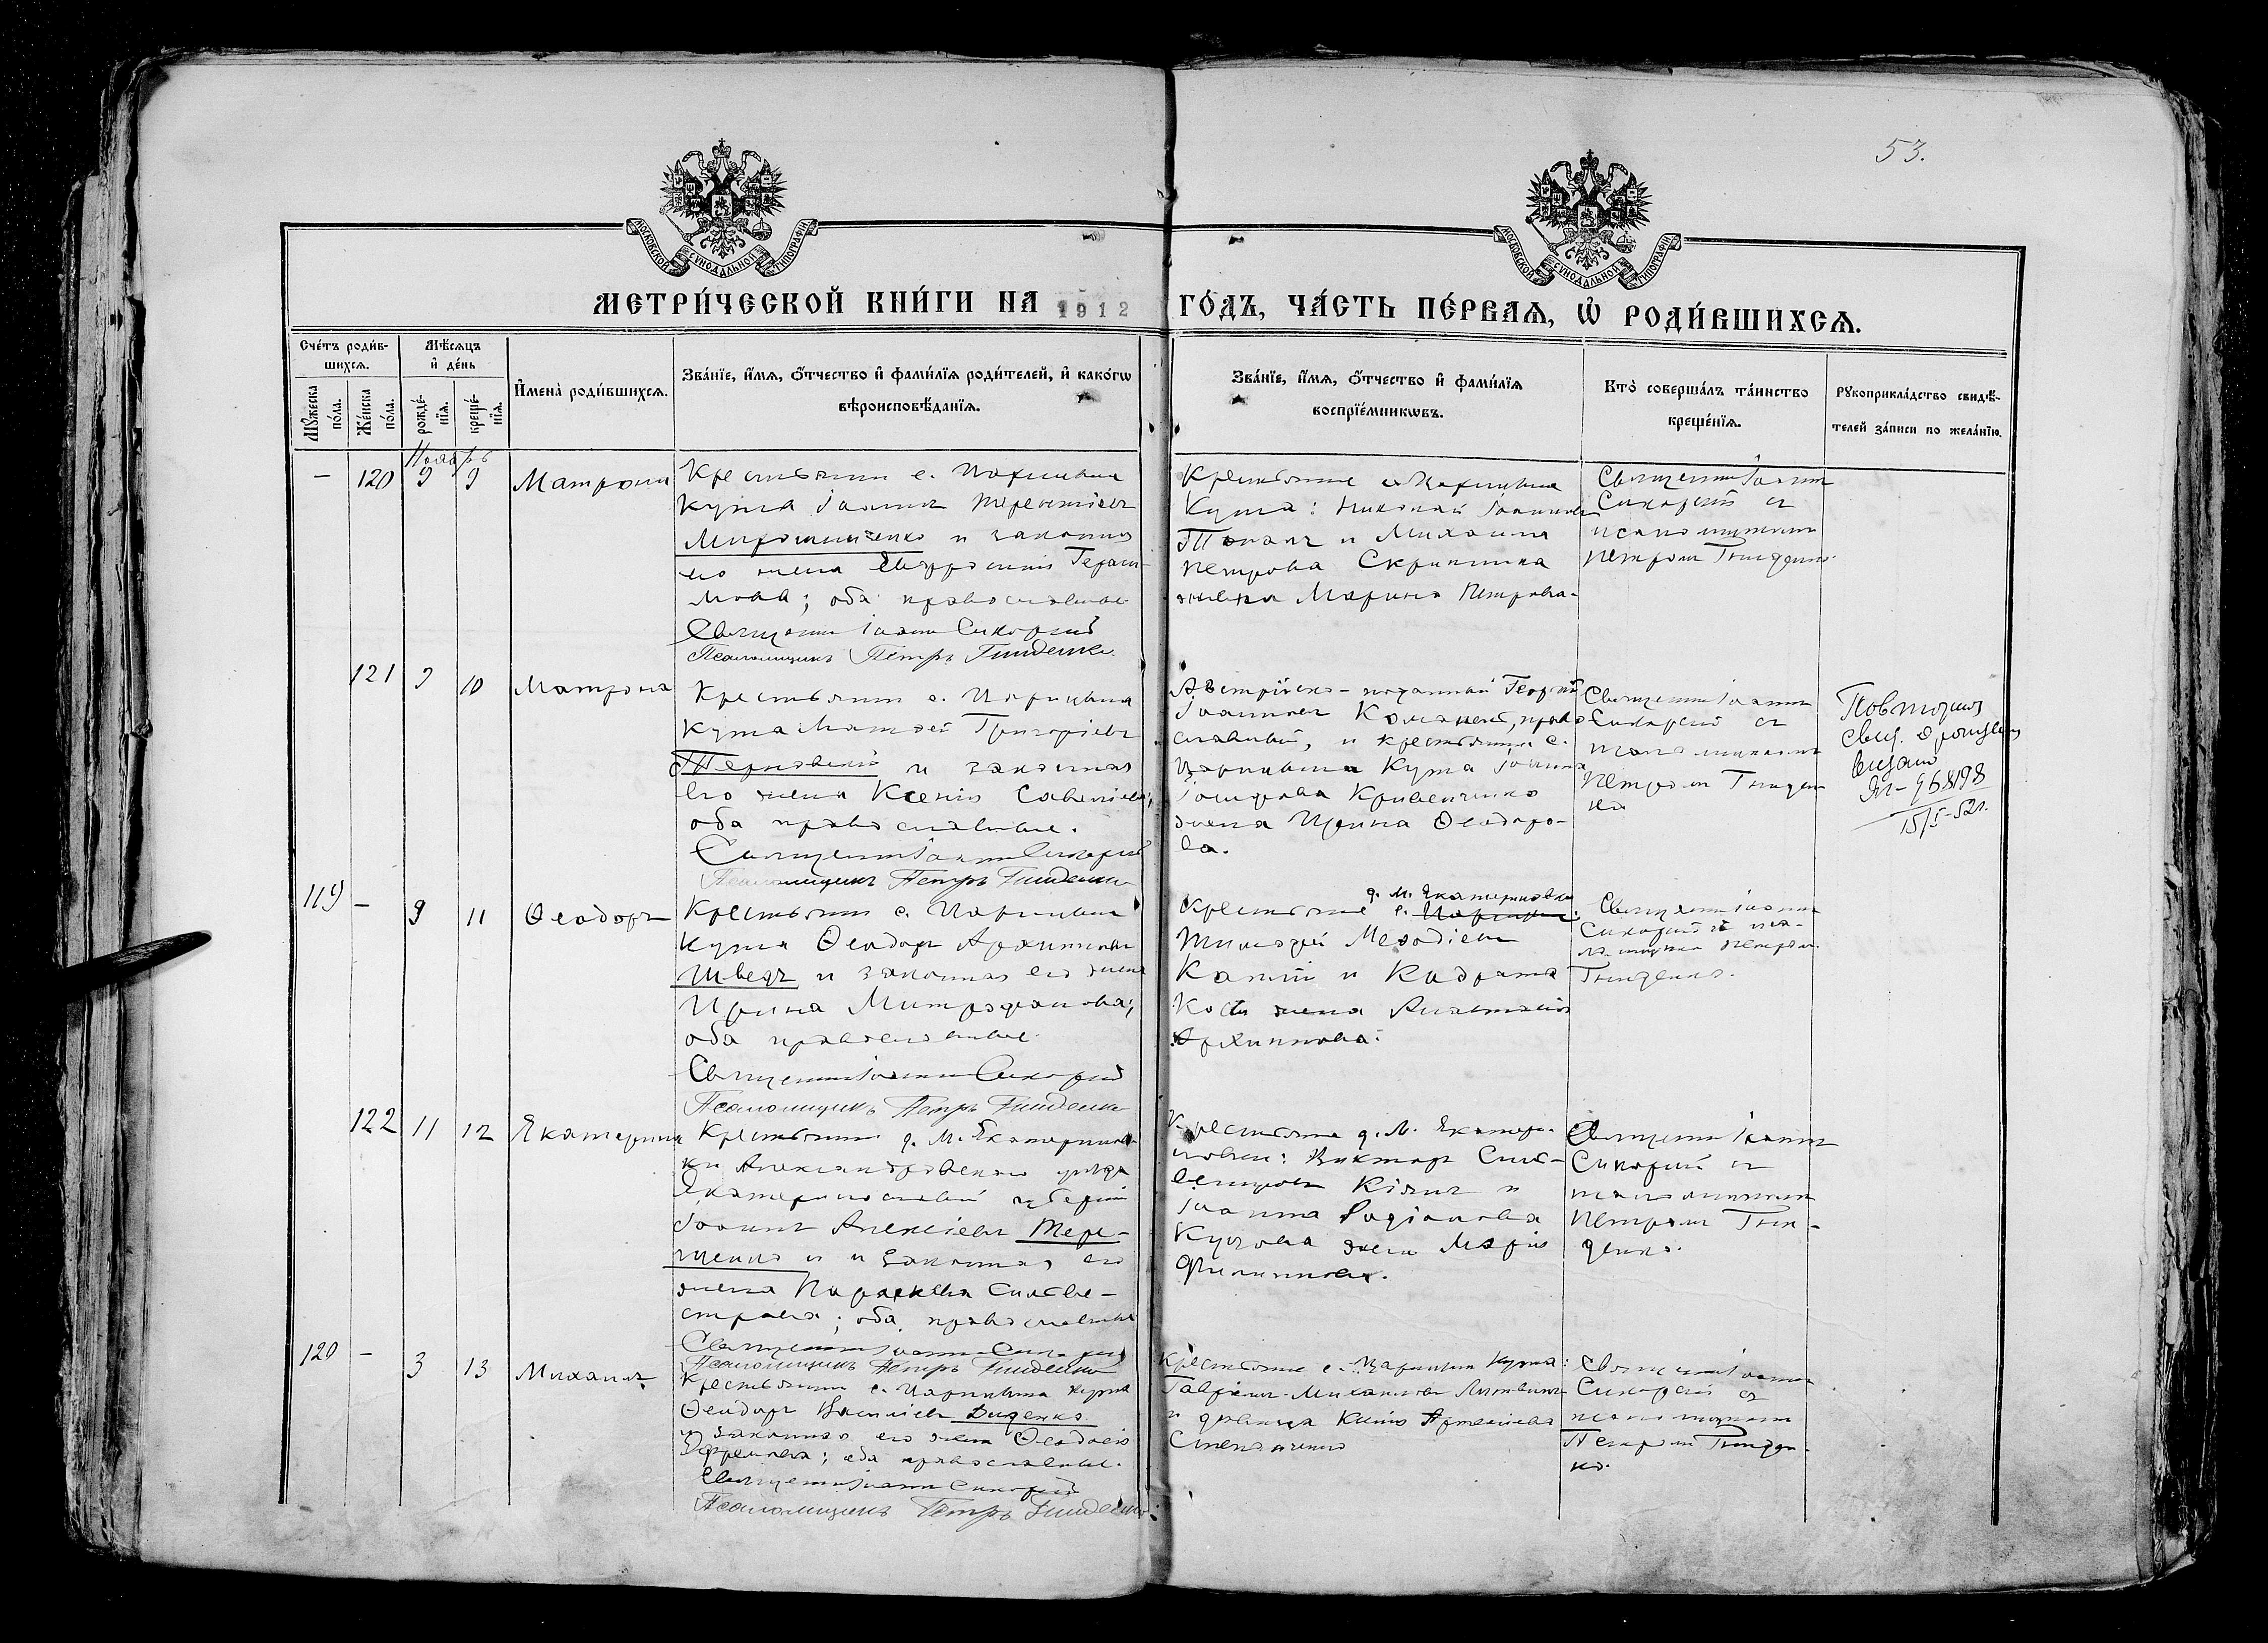 53.
МОСКОВСКОЙ СѴНОДАЛЬНОЙ ТИПОГРАФІИ
МОСКОВСКОЙ СѴНОДАЛЬНОЙ ТИПОГРАФІИ
МЕТРИ́ЧЕСКОЙ КНИ́ГИ НА 1912 ГО́ДЪ, ЧА́СТЬ ПЕ́РВАЯ, Ѡ҆ РОДИ́ВШИХСЯ.
Сче́тъ роди́в-
шихся.
Мѣ́сяцъ
и҆ де́нь
Мꙋ́жеска
по́ла.
Же́нска
по́ла.
рожде́-
нїя.
креще́-
нїя.
И҆мена̀ роди́вшихся.
Зва́нїе, и҆́мя, ѻ҆́тчество и҆ фами́лїя роди́телей, и҆ како́гѡ
вѣроисповѣ́данїя.
Зва́нїе, и҆́мя, ѻ҆́тчество и҆ фами́лїя
воспрїе́мникѡвъ.
Кто̀ соверша́лъ та́инство
креще́нїя.
Рꙋкоприкла́дство свидѣ́-
телей за́писи по жела́нїю.
Ноябрь
— 120 9 9 Матрона
Крестьянинъ с. Царицына
Кута Іоаннъ Терентіевъ
Мирошниченко и законная
его жена Евфросинія Гераси-
мова; оба православные
Священникъ Іоаннъ Сикорскій
Псаломщикъ Петръ Гниденко
Крестьяне с. Царицына
Кута: Николай Іоанновъ
и Михаила
Петрова Скрипника
жена Марина Петрова.
Священникъ Іоаннъ
Сикорскій съ
псаломщикомъ
Петромъ Гниденко
121 9 10 Матрона
Крестьянинъ с. Царицына
Кута Матѳей Григоріевъ
Терновскій и законная
его жена Ксенія Савеліева;
оба православные.
Священникъ Іоаннъ Сикорскій
Псаломщикъ Петръ Гниденко
Австрійско-подданный Георгій
Іоанновъ право-
славный, и крестьянина с.
Царицына Кута Іоанна
Кривенченко
жена Ирина Ѳеодоро-
ва.
Священникъ Іоаннъ
Сикорскій съ
псаломщикомъ
Петромъ Гниден-
ко
Повторное
свид. о рожден
выдано
15/I-52г.
119 — 9 11 Ѳеодоръ
Крестьянинъ с. Царицына
Кута Ѳеодоръ Архиповъ
Шведъ и законная его жена
Ирина Митрофанова;
оба православные
Священникъ Іоаннъ Сикорскій
Псаломщикъ Петръ Гниденко
д. М. Екатериновки
Крестьяне с. Царицына:
Тимоѳей Меѳодіевъ
и Кодрата
жена Анастасія
Архиппова.
Священникъ Іоаннъ
Сикорскій съ пса-
ломщикомъ Петромъ
Гниденко.
122 11 12 Екатерина
Крестьянинъ д. М. Екатеринов-
ки Александровскаго уѣзда
Екатеринославской губерніи
Іоаннъ Алексіевъ Тере-
щенко и законная его
жена Параскева Сильве-
строва; оба православные
Священникъ Іоаннъ Сикорскій
Псаломщикъ Петръ Гниденко
Крестьяне д. М. Екатери-
новки: Викторъ Силь-
вестровъ Кіянъ и
Іоанна Родіонова
жена Марія
Филиппова.
Священникъ Іоаннъ
Сикорскій съ
псаломщикомъ
Петромъ Гни-
денко.
120 — 3 13 Михаилъ
Крестьянинъ с. Царицына Кута
Ѳеодоръ Василіевъ Диденко
и законная его жена Ѳеодосія
Ефремова; оба православные.
Священникъ Іоаннъ Сикорскій
Псаломщикъ Петръ Гниденко
Крестьяне с. Царицына Кута:
Гавріилъ Михаиловъ Литвинъ
и дѣвица
Священникъ Іоаннъ
Сикорскій съ
псаломщикомъ
Петромъ Гниден-
ко.